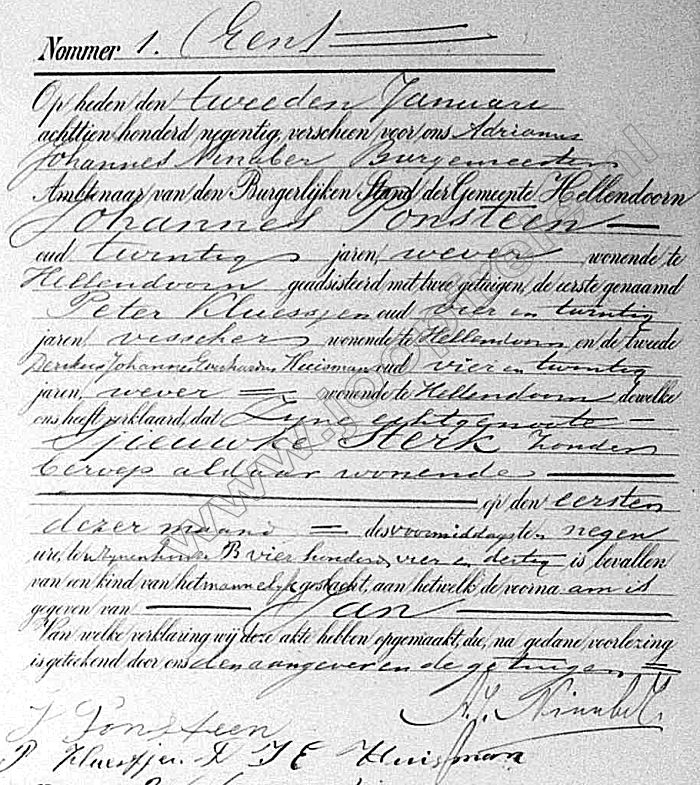 Nommer 1. (Eerst
Op heden den tweeden Januari
achttien honderd negentig, verscheen voor ons Adrianus
Johannes Ninaber Burgemeester
Ambtenaar van den Burgerlijken Stand der Gemeente Hellendoorn
Johannes Ponsteen
oud twintig jaren, wever wonende te
Hellendoorn geadsisteerd met twee getuigen, de eerste genaamd
Peter Kluessjen oud vier en twintig
jaren, visscher wonende te Hellendoorn en de tweede
Derikus Johannes Everhardus Huisman oud vier en twintig
jaren, wever wonende te Hellendoorn dewelke
ons heeft verklaard, dat Zyne echtgenoote
Sjieuwke Sterk zonder
beroep aldaar wonende
op den eersten
dezer maand des voormiddags te negen
ure, ten zynenhuize B vier honderd vier en dertig is bevallen
van een kind van het mannelyk geslacht, aan hetwelk de voornaam is
gegeven van Jan
Van welke verklaring wij deze akte hebben opgemaakt, die, na gedane voorlezing
is geteekend door ons den aangever en de getuigen
A.J. Ninaber
J Ponsteen
P Kluessjen D J E Huisman
www.joopreis.nl